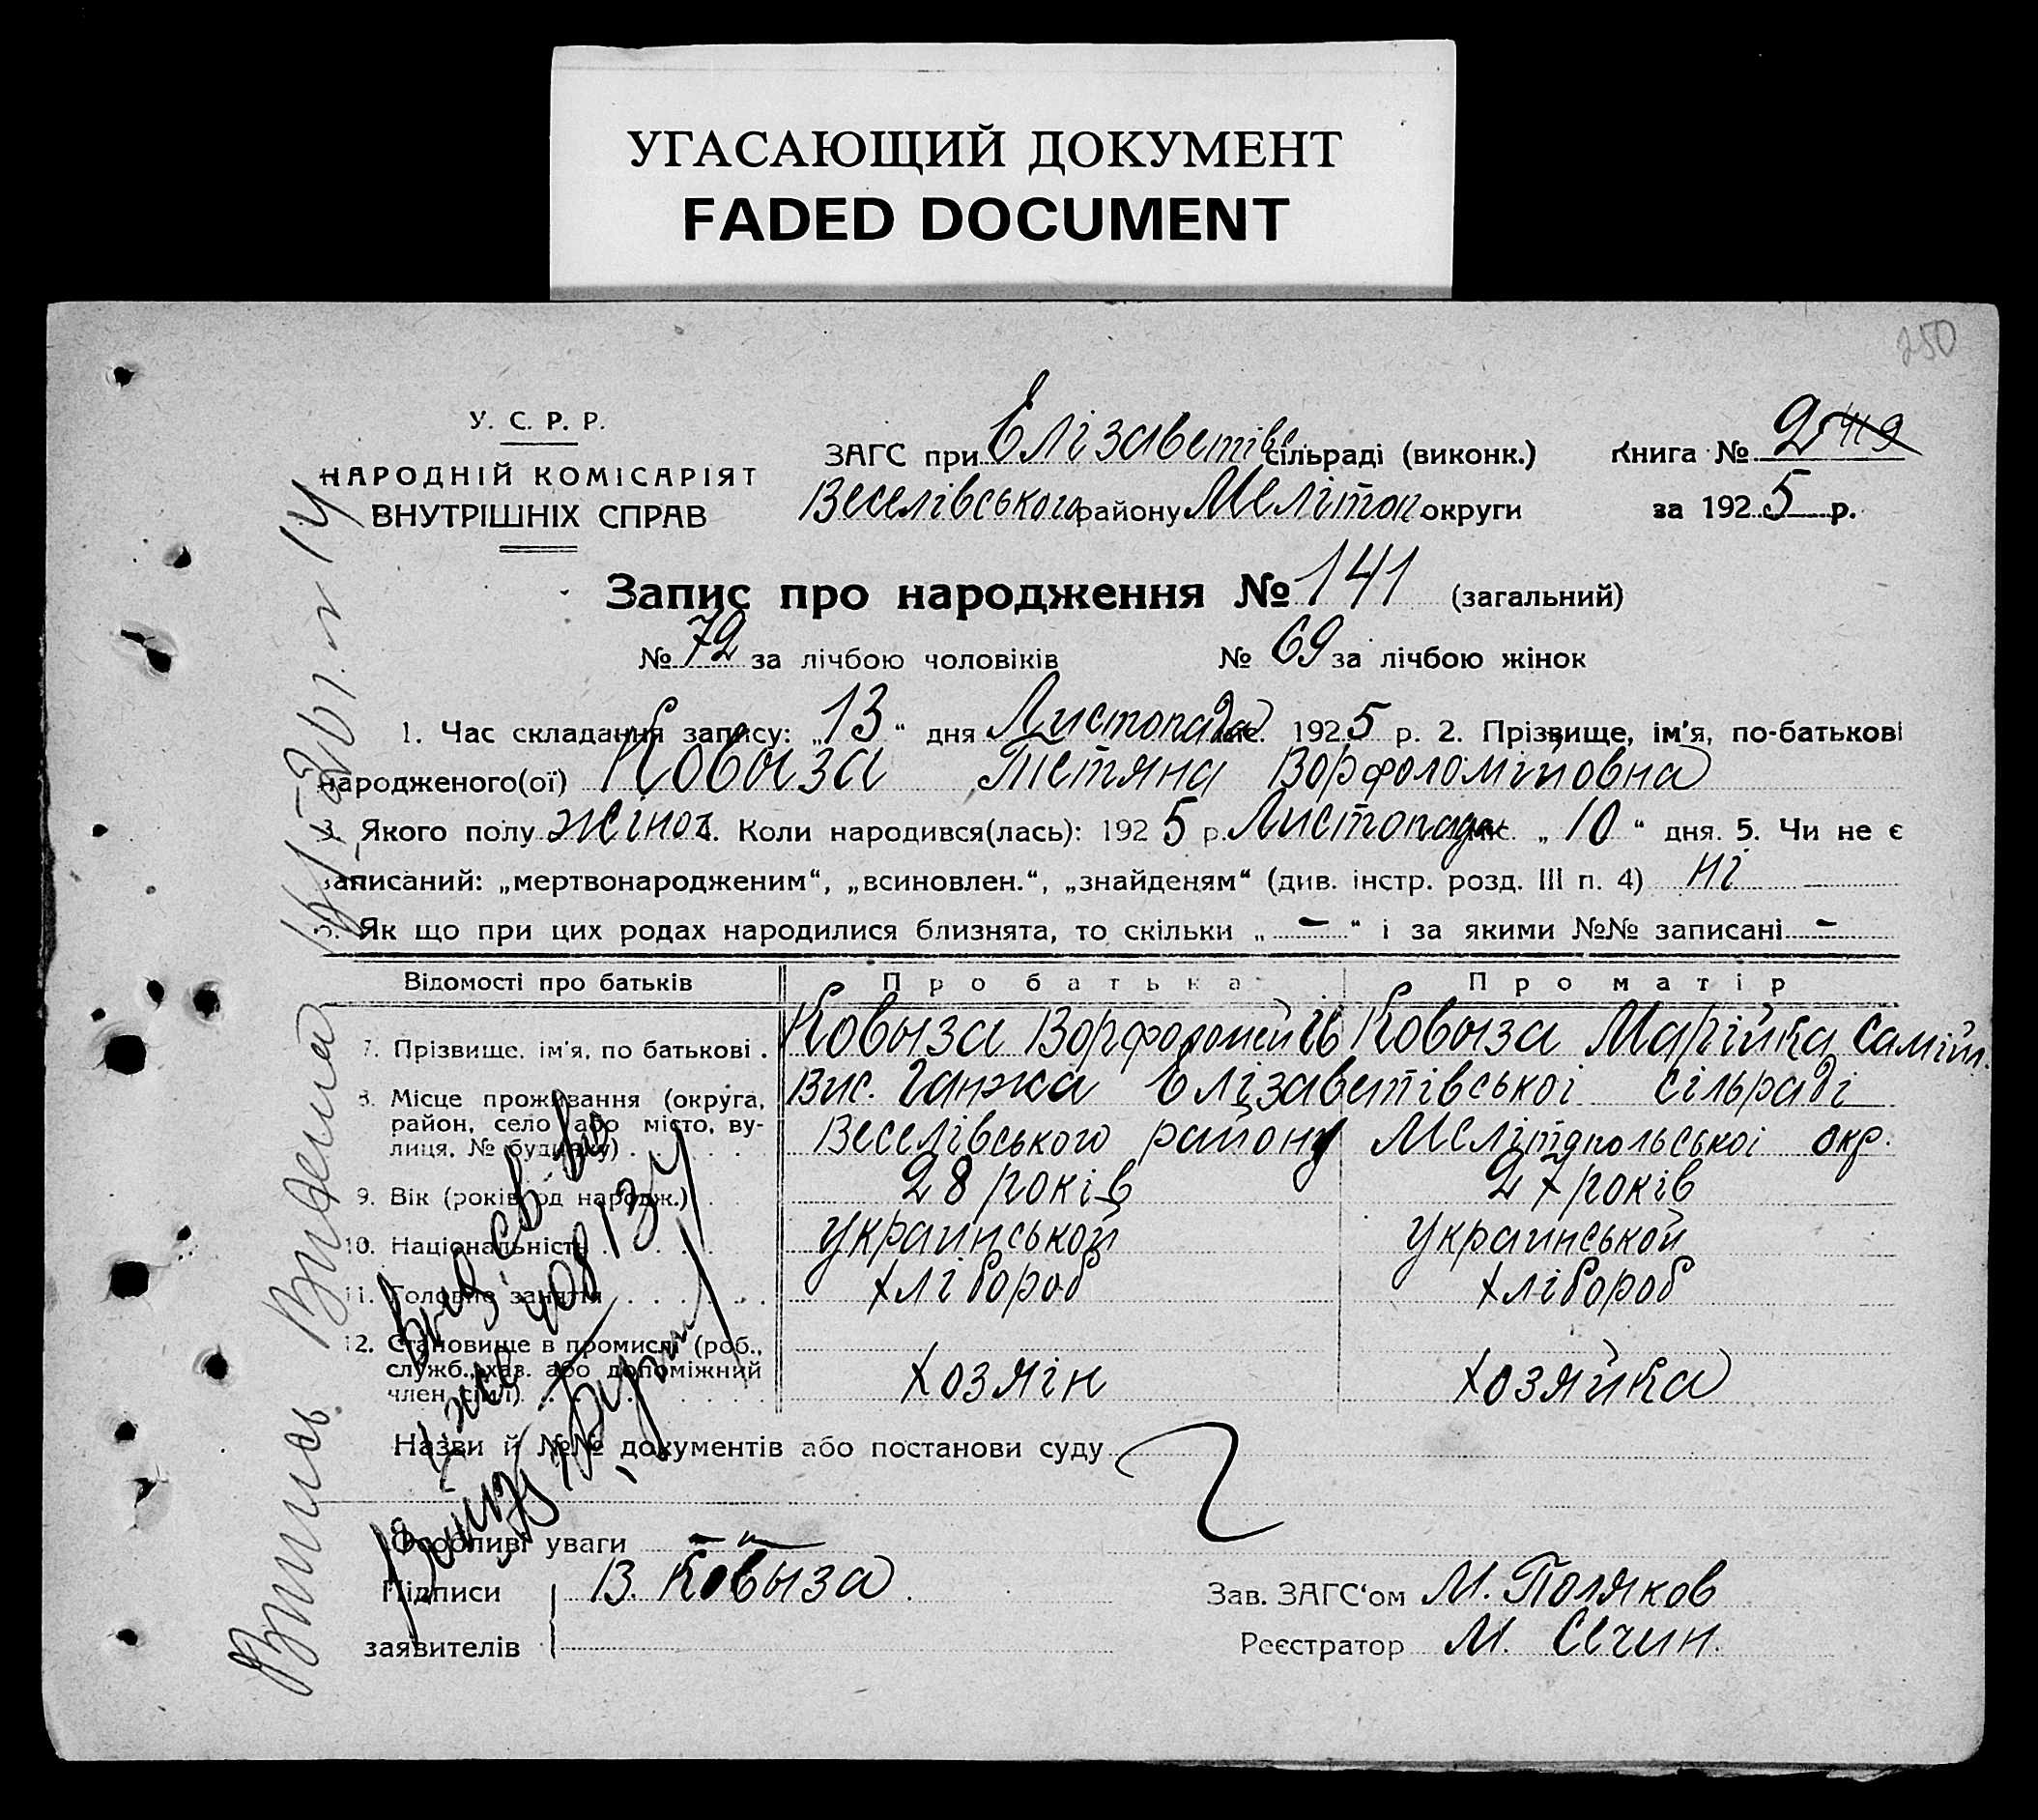 УГАСАЮЩИЙ ДОКУМЕНТ
FADED DOCUMENT
250
У. С. Р. Р.
НАРОДНІЙ КОМІСАРІЯТ
ВНУТРІШНІХ СПРАВ
ЗАГС при Елізаветівс сільраді (виконк.)
Книга № 2
Веселівського району Меліток округи
за 1925 р.
Запис про народження № 141 (загальний)
№ 72 за лічбою чоловіків № 69 за лічбою жінок
1. Час складання запису: „13“ дня Листопада міс. 1925 р. 2. Прізвище, ім'я, по-батькові
народженого(ої) Ковыза Тетяна Ворфоломійовна
3. Якого полу жіноч. 4. Коли народився(лась): 1925 р. Листопада міс. „10“ дня. 5. Чи не є
записаний: „мертвонародженим“, „всиновлен.“, „знайденям“ (див. інстр. розд. III п. 4) ні
Як що при цих родах народилися близнята, то скільки „ - “ і за якими №№ записані -
Відомості про батьків Про батька Про матір
7. Прізвище, ім'я, по батькові . Ковыза Ворфоломей Ів Ковыза Марійка Самійл.
8. Місце проживання (округа, район, село або місто, вулиця, № будинку) Вис. Ганжа Елізаветівськоі сільраді
Веселівського району Мелітопольськоі окр.
9. Вік (років од народж.) 28 років 27 років
10. Національність украинськой украинськой
11. Головне заняття хлібороб хлібороб
12. Становище в промислі (роб.,
служб., хаз. або допоміжний
член сім'ї) хозяін хозяйка
Назви й №№ документів або постанови суду
Особливі уваги - " -
Підписи В. Ковыза
заявителів
Зав. ЗАГС‘ом М. Поляков
Реєстратор М. Сечин.
Витись Видена